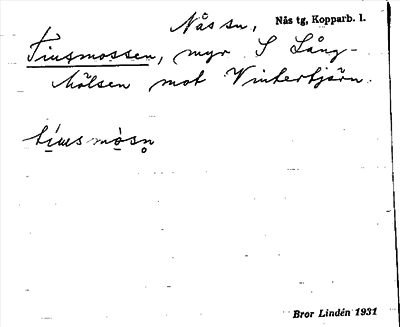 Nås sn, Nås tg, Kopparb. l.
Tiusmossen, myr S Lång-
hölsen mot Vintertjärn.
tíusmòsn̥
Bror Lindén 1931